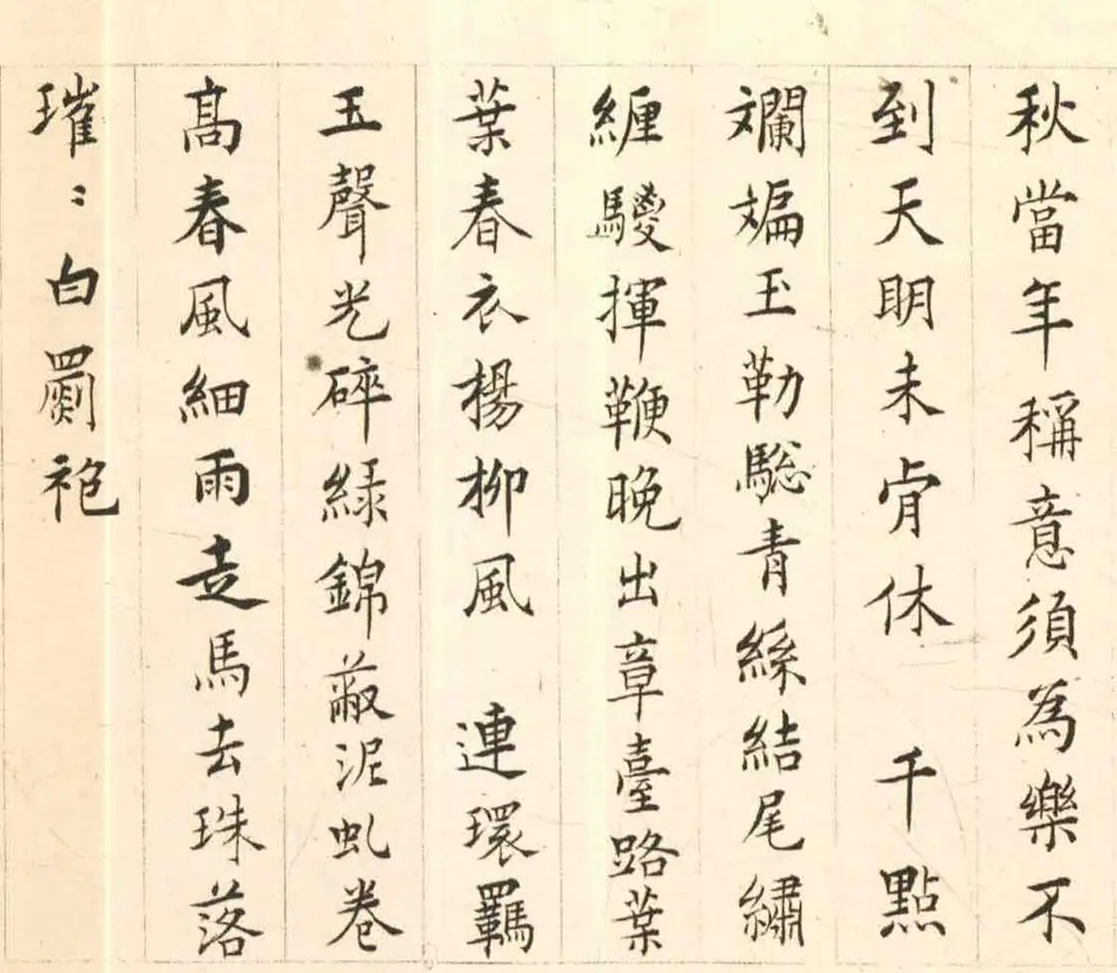 秋當年稱意須為樂不
到天明未肎休　千點
斕斒玉勒騘青絲結尾繡
纏騣揮鞭晚出章臺路葉
葉春衣楊柳風　連環羈
玉聲光碎綠錦蔽泥虬卷
髙春風細雨走馬去珠落
璀〻白罽袍